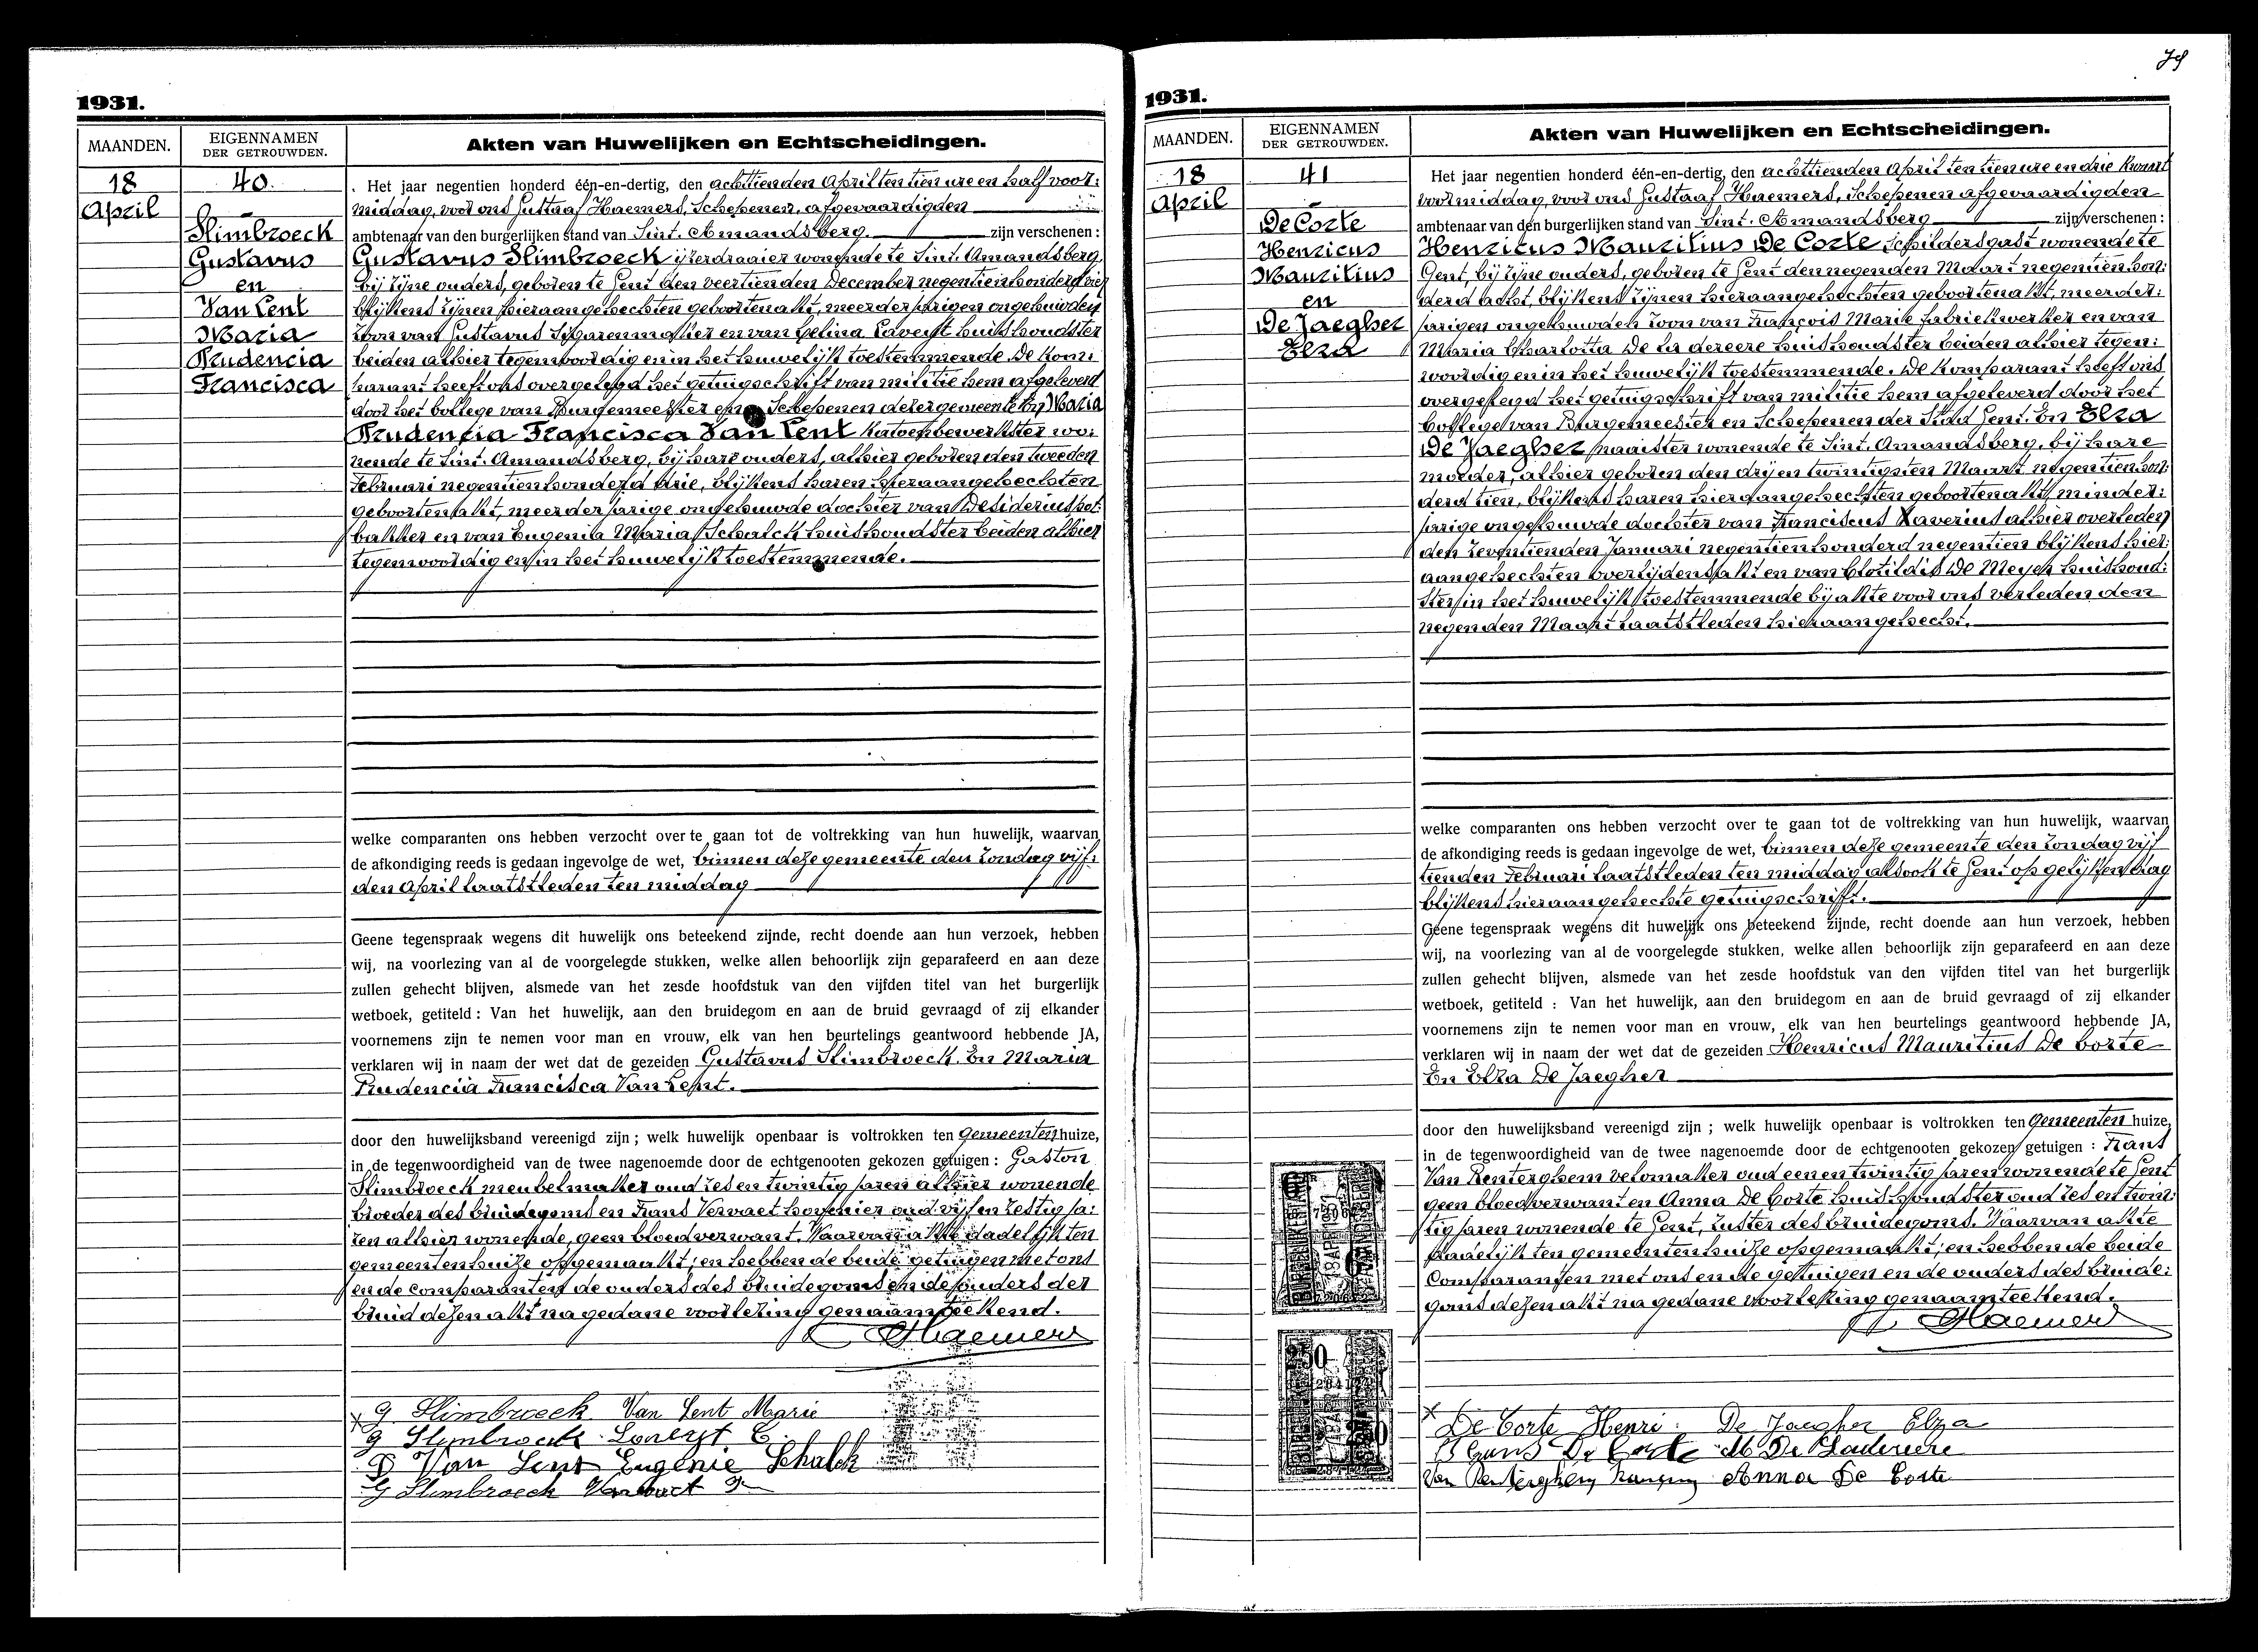 1931.
MAANDEN.
EIGENNAMEN
DER GETROUWDEN.
Akten van Huwelijken en Echtscheidingen.
18
April
40.
Slimbroeck
Gustavus
en
Van Lent
Maria
Prudencia
Francisca
Het jaar negentien honderd één-en-dertig, den achttienden April ten tien ure en half voor:
middag, voor ons Gustaaf Haemers, Schepenen, afgevaardigden
ambtenaar van den burgerlijken stand van Sint. Amandsberg. zijn verschenen :
Gustavus Slimbroeck ijzerdraaier wonende te Sint. Amandsberg,
bij zijne ouders, geboren te Gent den veertienden December negentienhonderd vier
blijkens zijnen hieraangehechten geboortenakt, meerderjarigen ongehuwden
zoon van Gustavus Sigarenmaker en van Celina Laveyt huishoudster
beiden alhier tegenwoordig en in het huwelijk toestemmende. De Kom:
parant heeft ons overgelegd het getuigschrift van militie hem afgeleverd
door het College van Burgemeester en Schepenen dezer gemeente. En Maria
Prudencia Francisca Van Lent Katoenbewerkster wo:
nende te Sint. Amandsberg, bij hare ouders, alhier geboren den tweeden
Februari negentienhonderd drie, blijkens haren hieraangehechten
geboortenakt, meerderjarige ongehuwde dochter van Desiderius
bakker en van Eugenia Maria Schalck huishoudster beiden alhier
tegenwoordig en in het huwelijk toestemmende.
welke comparanten ons hebben verzocht over te gaan tot de voltrekking van hun huwelijk, waarvan
de afkondiging reeds is gedaan ingevolge de wet, binnen deze gemeente den Zondag vijf:
den April laatstleden ten middag
Geene tegenspraak wegens dit huwelijk ons beteekend zijnde, recht doende aan hun verzoek, hebben
wij, na voorlezing van al de voorgelegde stukken, welke allen behoorlijk zijn geparafeerd en aan deze
zullen gehecht blijven, alsmede van het zesde hoofdstuk van den vijfden titel van het burgerlijk
wetboek, getiteld : Van het huwelijk, aan den bruidegom en aan de bruid gevraagd of zij elkander
voornemens zijn te nemen voor man en vrouw, elk van hen beurtelings geantwoord hebbende JA,
verklaren wij in naam der wet dat de gezeiden Gustavus Slimbroeck. En Maria
Prudencia Francisca Van Lent.
door den huwelijksband vereenigd zijn ; welk huwelijk openbaar is voltrokken ten Gemeentenhuize,
in de tegenwoordigheid van de twee nagenoemde door de echtgenooten gekozen getuigen : Gaston
Slimbroeck meubelmaker oud zes en twintig jaren alhier wonende
broeder des bruidegoms en Frans Vervaet hovenier oud vijf en zestig ja:
ren alhier wonende, geen bloedverwant. Waarvan akte dadelijk ten
gemeentenhuize opgemaakt; en hebben de beide getuigen met ons
en de comparanten de ouders des bruidegoms en de ouders der
bruid dezen akt na gedane voorlezing genaamteekend.
G. Haemers
G Slimbroeck Van Lent Marie
G Slimbroeck
D Van Lent Eugenie Schalck
G Slimbroeck
79
1931.
MAANDEN.
EIGENNAMEN
DER GETROUWDEN.
Akten van Huwelijken en Echtscheidingen.
18
April
41
De Corte
Henricus
Mauritius
en
De Jaegher
Elza
Het jaar negentien honderd één-en-dertig, den achttienden April ten tien ure en drie Kwart
voormiddag, voor ons Gustaaf Haemers, Schepenen afgevaardigden
ambtenaar van den burgerlijken stand van Sint. Amandsberg zijn verschenen :
Henricus Mauritius De Corte, schildersgast wonende te
Gent, bij zijne ouders, geboren te Gent den negenden Maart negentienhon:
derd acht, blijkens zijnen hieraangehechten geboortenakt, meerder:
jarigen ongehuwden zoon van François Marie fabriekwerker en van
Maria Charlotta De La dereere huishoudster beiden alhier tegen:
woordig en in het huwelijk toestemmende. De Komparant heeft ons
overgelegd het getuigschrift van militie hem afgeleverd door het
College van Burgemeester en Schepenen der Stad Gent. En Elza
De Jaegher naaister wonende te Sint. Amandsberg, bij hare
moeder, alhier geboren den drij en twintigsten Maart negentienhon:
derd tien, blijkens haren hieraangehechten geboortenakt, minder:
jarige ongehuwde dochter van Franciscus Xaverius alhier overleden
den zeventienden Januari negentienhonderd negentien blijkens hier:
aangehechten overlijdensakt en van Clotildis De Meyer huishoud:
ster in het huwelijk toestemmende bij akte voor ons verleden den
negenden Maart laatstleden hieraangehecht.
welke comparanten ons hebben verzocht over te gaan tot de voltrekking van hun huwelijk, waarvan
de afkondiging reeds is gedaan ingevolge de wet, binnen deze gemeente den Zondag vijf
tienden Februari laatstleden ten middag alsook te Gent op gelijken dag
blijkens hieraangehechte getuigschrift.
Geene tegenspraak wegens dit huwelijk ons beteekend zijnde, recht doende aan hun verzoek, hebben
wij, na voorlezing van al de voorgelegde stukken, welke allen behoorlijk zijn geparafeerd en aan deze
zullen gehecht blijven, alsmede van het zesde hoofdstuk van den vijfden titel van het burgerlijk
wetboek, getiteld : Van het huwelijk, aan den bruidegom en aan de bruid gevraagd of zij elkander
voornemens zijn te nemen voor man en vrouw, elk van hen beurtelings geantwoord hebbende JA,
verklaren wij in naam der wet dat de gezeiden Henricus Mauritius De Corte
En Elza De Jaegher
door den huwelijksband vereenigd zijn ; welk huwelijk openbaar is voltrokken ten Gemeenten huize,
in de tegenwoordigheid van de twee nagenoemde door de echtgenooten gekozen getuigen : Frans
Van Renterghem velomaker oud een en twintig jaren wonende te Gent
geen bloedverwant en Anna De Corte huishoudster oud zes en twin:
tig jaren wonende te Gent, zuster des bruidegoms. Waarvan akte
dadelijk ten gemeentenhuize opgemaakt; en hebben de beide
Comparanten met ons en de getuigen en de ouders des bruide:
goms dezen akt na gedane voorlezing genaamteekend.
G. Haemers
De Corte Henri. De Jaegher Elza
De Corte M De Ladereere
Van Renterghem Anna De Corte